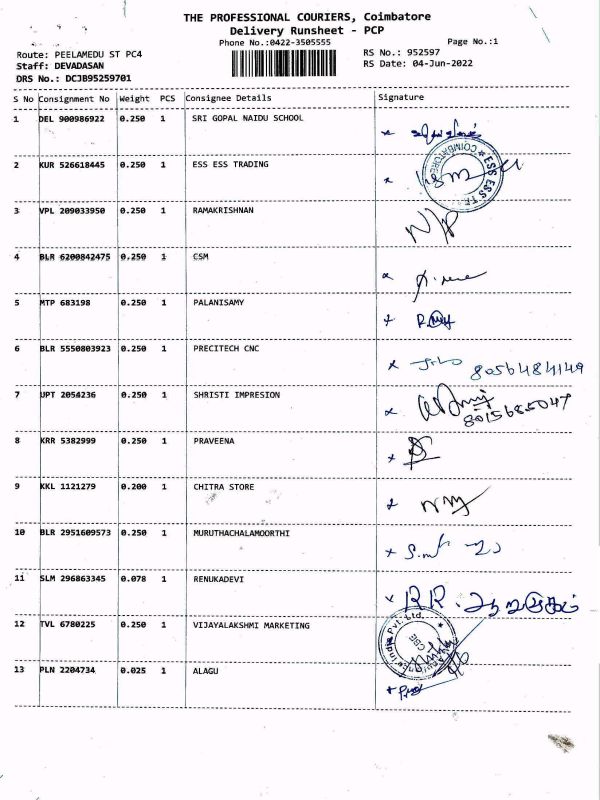 THE PROFESSIONAL COURIERS, Coimbatore
Delivery Runsheet - PCP
Phone No.:0422-3505555
Page No.:1
Route: PEELAMEDU ST PC4
RS No.: 952597
Staff: DEVADASAN
RS Date: 04-Jun-2022
DRS No.: DCJB95259701
S No Consignment No Weight PCS Consignee Details Signature
1 DEL 900986922 0.250 1 SRI GOPAL NAIDU SCHOOL
2 KUR 526618445 0.250 1 ESS ESS TRADING COIMBATORE ESS ESS
3 VPL 209033950 0.250 1 RAMAKRISHNAN
4 BLR 6200842475 0.250 1 CSM
5 MTP 683198 0.250 1 PALANISAMY
6 BLR 5550803923 0.250 1 PRECITECH CNC 8056484149
7 UPT 2054236 0.250 1 SHRISTI IMPRESION 8015685047
8 KRR 5382999 0.250 1 PRAVEENA
9 KKL 1121279 0.200 1 CHITRA STORE
10 BLR 2951609573 0.250 1 MURUTHACHALAMOORTHI
11 SLM 296863345 0.078 1 RENUKADEVI RR. ஆறுமுகம்
12 TVL 6780225 0.250 1 VIJAYALAKSHMI MARKETING India Pvt. Ltd. CBE
13 PLN 2204734 0.025 1 ALAGU